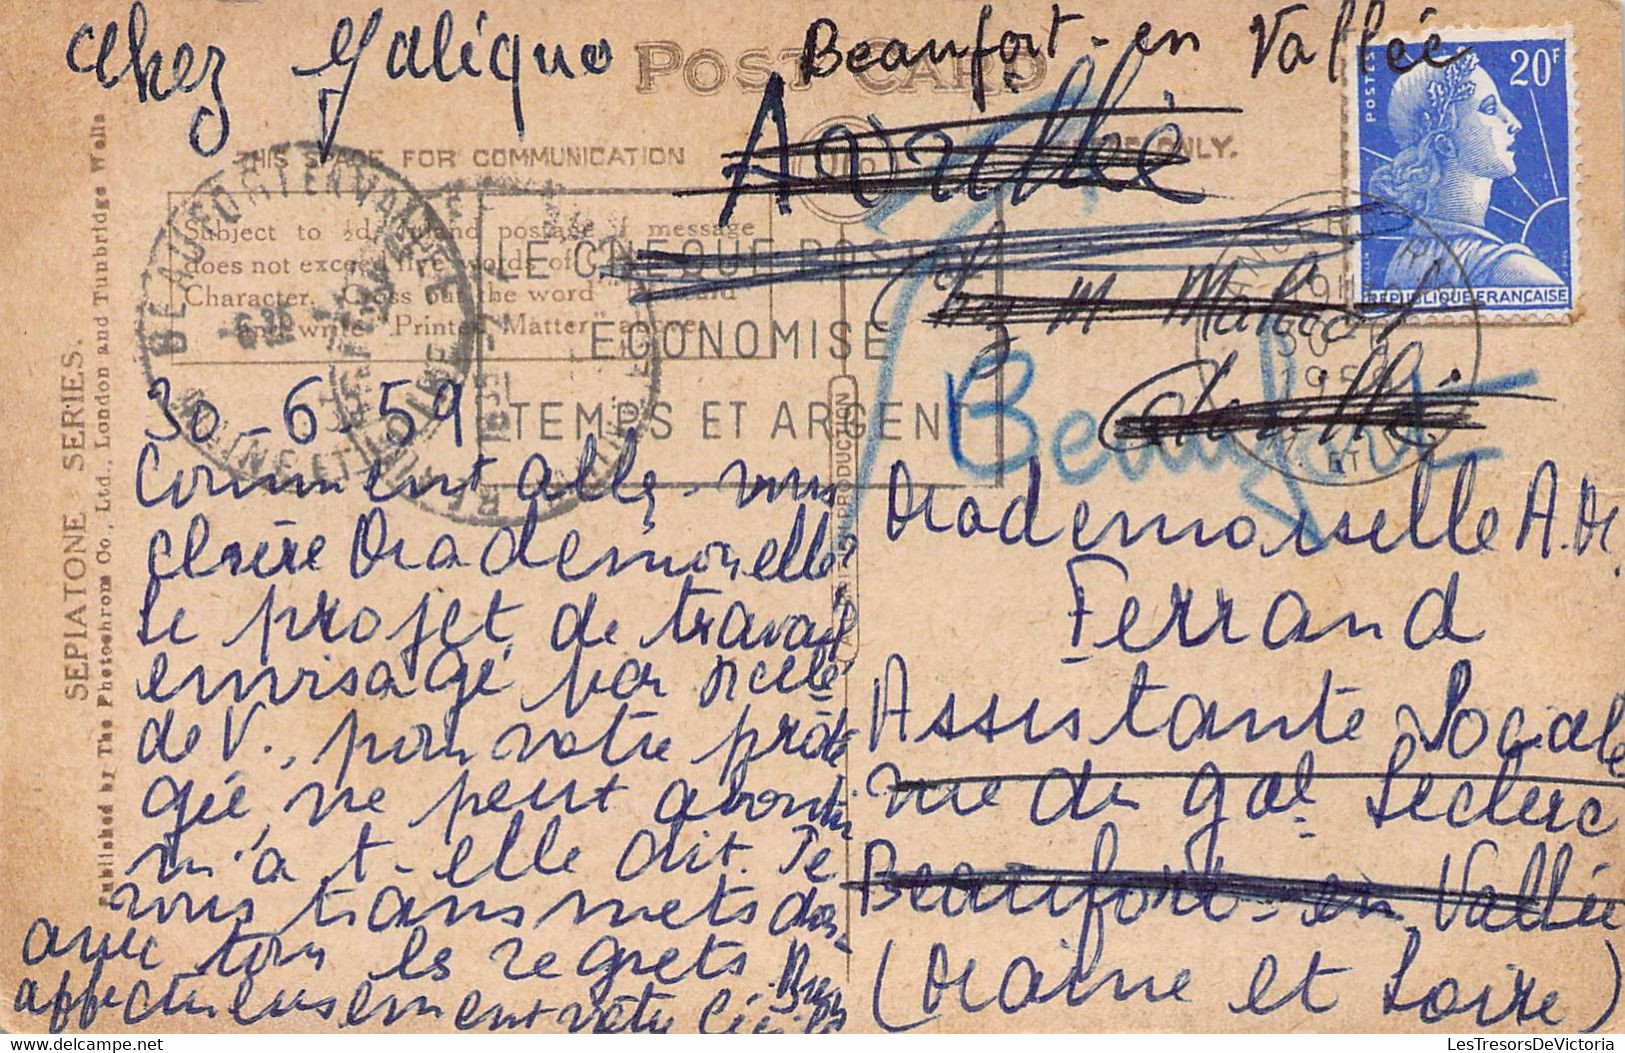 Chez Galique
Beaufort-en Vallée
POST CARD
THIS SPACE FOR COMMUNICATION
ONLY.
Subject to ½d. Inland postage if message
does not exceed five words of
Character. Cross out the word
and write "Printed Matter" above.
SEPIATONE SERIES.
Published by The Photochrom Co., Ltd., London and Tunbridge Wells
BEAUFORT EN VALLEE
MAINE ET LOIRE
LE CHEQUE POSTAL
ECONOMISE
TEMPS ET ARGENT
POSTES
20F
REPUBLIQUE FRANÇAISE
ANGERS
Chez Mr
Beaufort
30-6-59
Comment allez-vous
chère Mademoiselle?
Le projet de travail
envisagé par Melle
de V., pour votre proté
gée, ne peut aboutir
m'a t-elle dit. Je
vous transmets donc
avec tous les regrets. Bien
affectueusement votre
Mademoiselle A.M.
Ferrand
Assistante Sociale
rue du Gal Leclerc
Beaufort-en Vallée
(Maine et Loire)
LesTresorsDeVictoria
delcampe.net